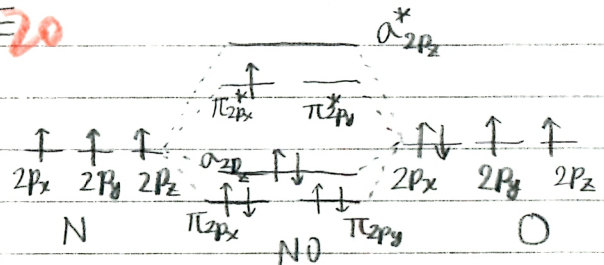 20
a*2pz
π*2px π*2py
a2pz
2px 2py 2pz 2px 2py 2pz
π2px π2py
N NO O